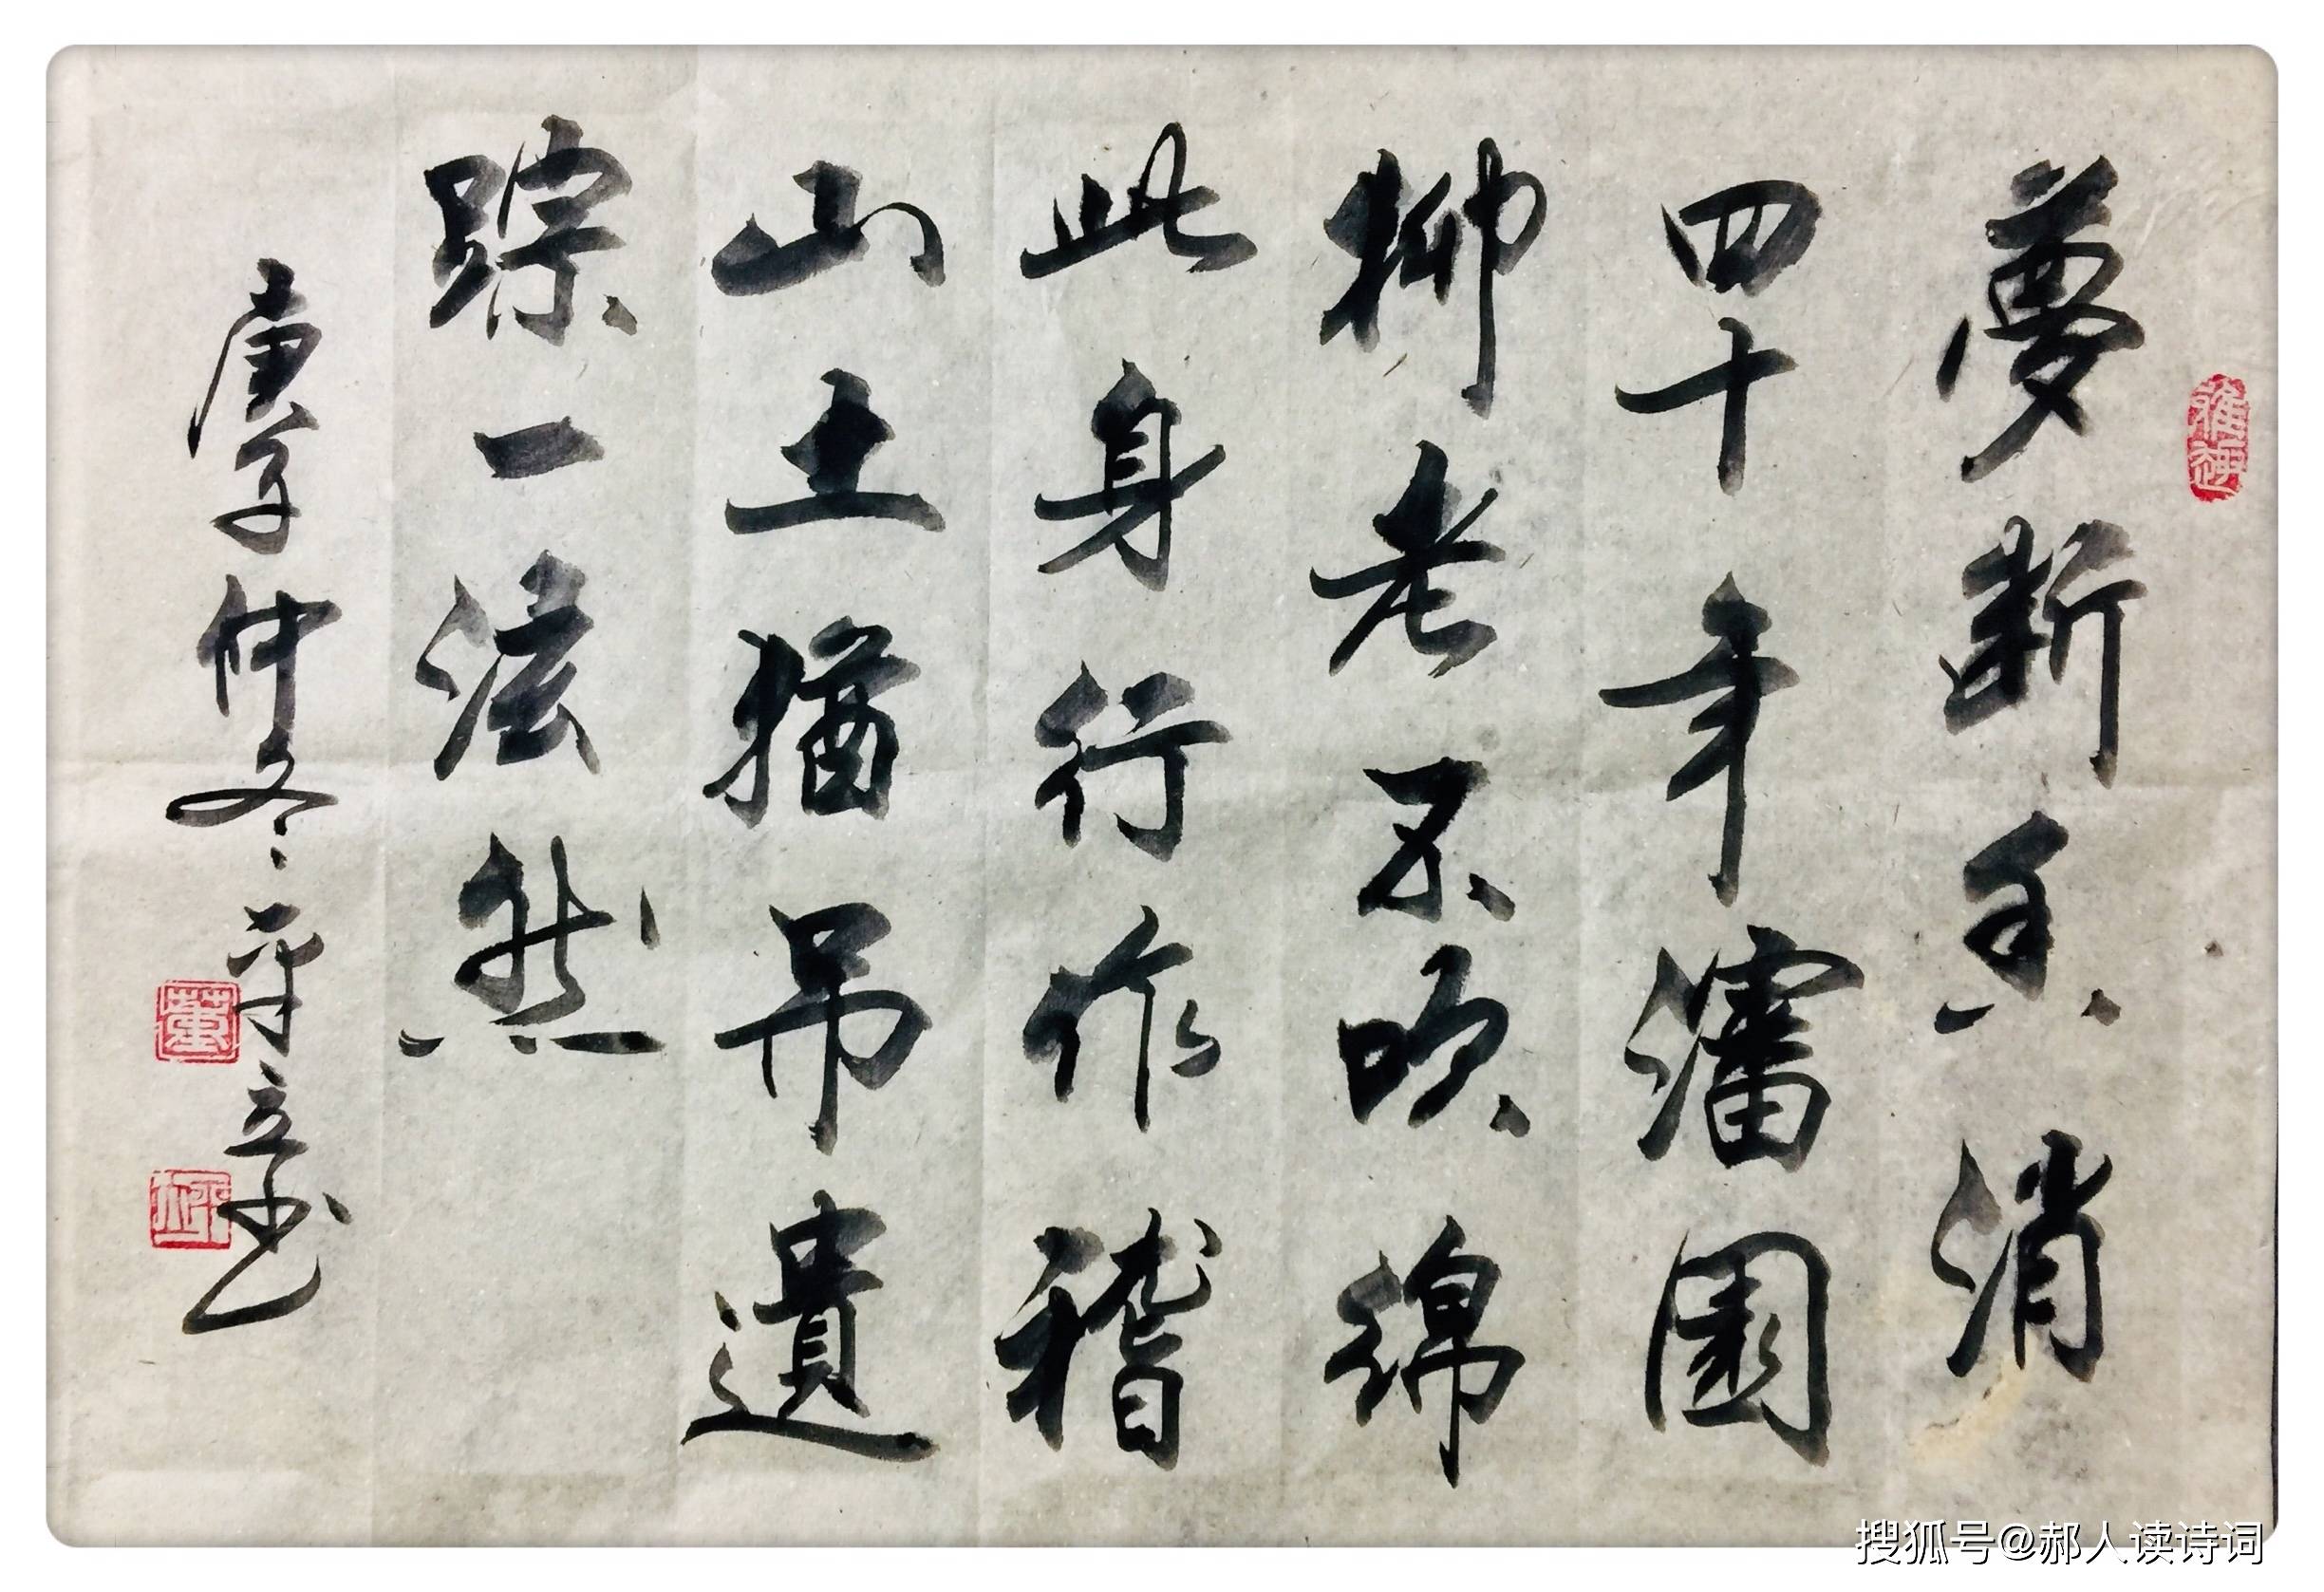 夢斷香消
四十年瀋園
柳老不吹綿
此身行作稽
山土猶吊遺
踪一泫然
庚子仲冬平立书
董
搜狐号@郝人读诗词